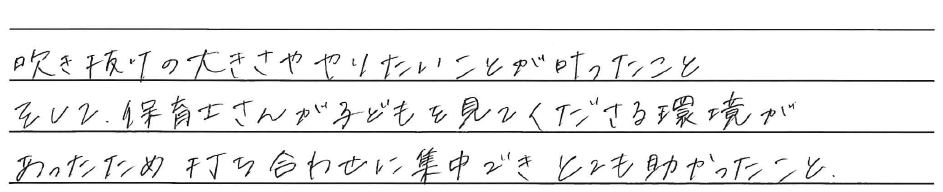 吹き抜けの大きさややりたいことが叶ったこと
そして、保育士さんが子どもを見てくださる環境が
あったため 打ち合わせに集中でき とても助かったこと.